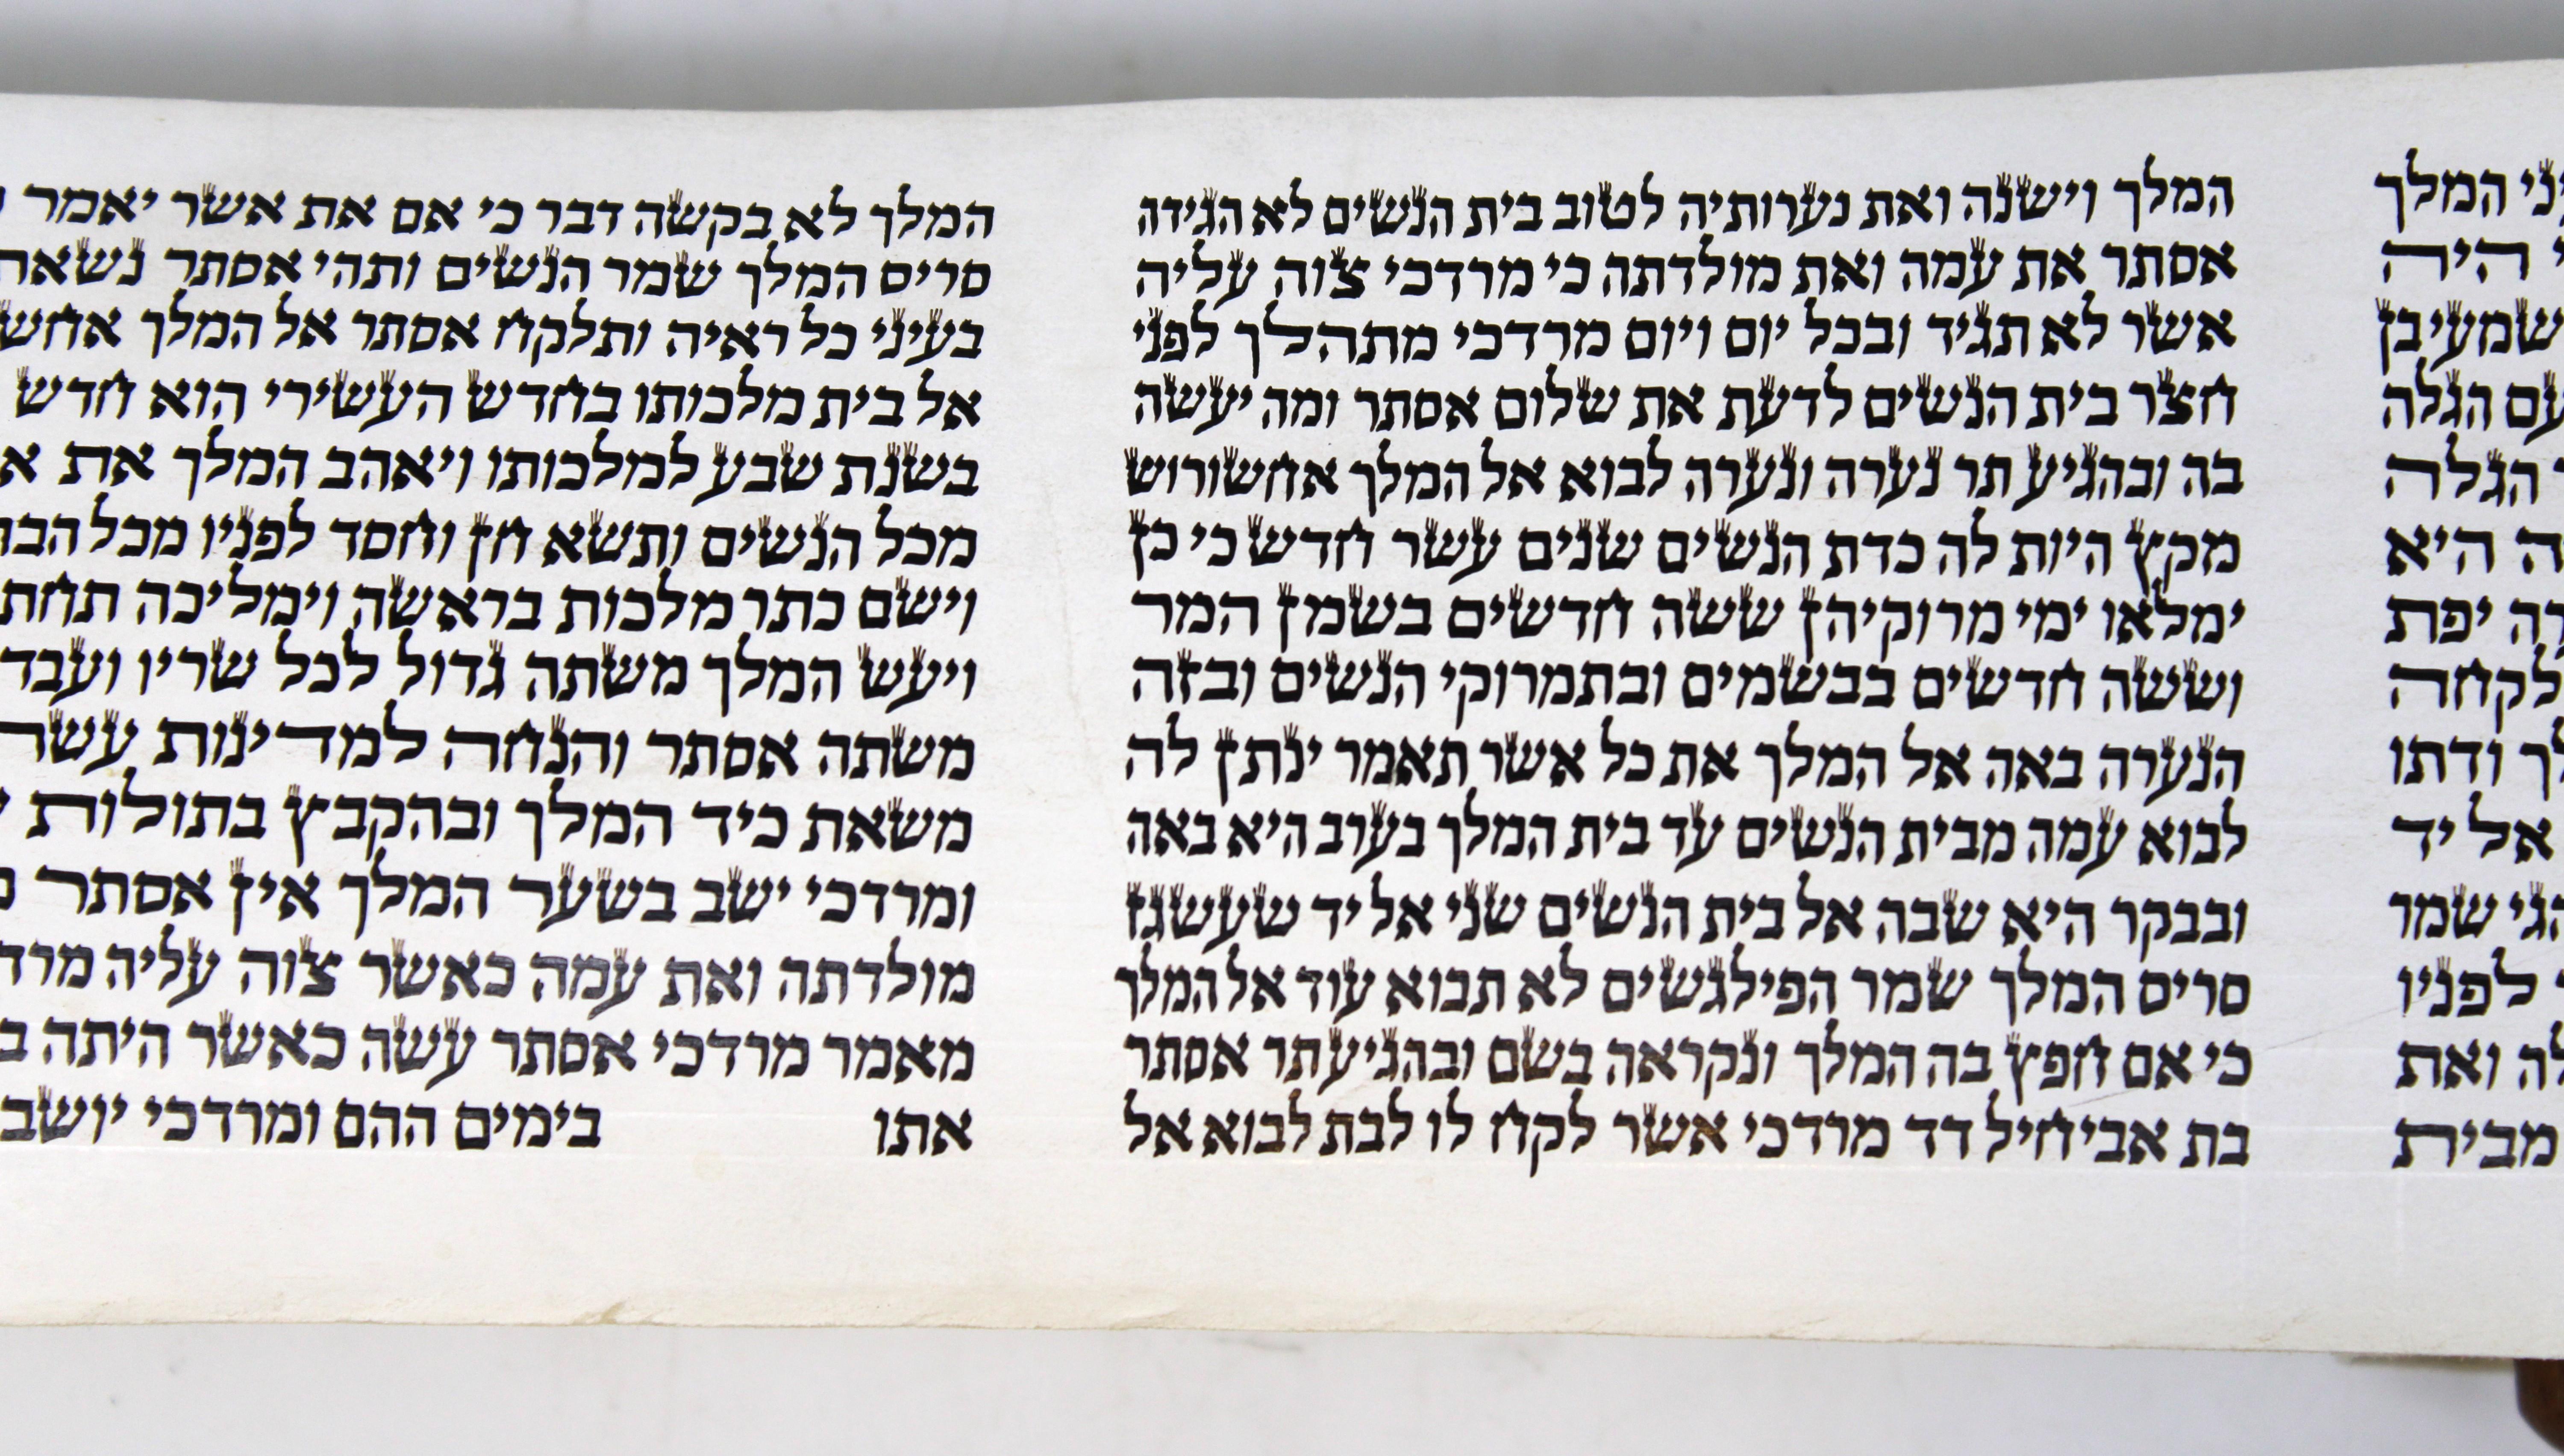 יני המלך
י היה
שמעי בן
עם הגלה
הגלה
ה היא
רה יפת
לקחה
לך ודתו
אל יד
הגי שמר
לפניו
לה ואת
מבית
המלך וישנה ואת נערותיה לטוב בית הנשים לא הגידה
אסתר את עמה ואת מולדתה כי מרדכי צוה עליה
אשר לא תגיד ובכל יום ויום מרדכי מתהלך לפני
חצר בית הנשים לדעת את שלום אסתר ומה יעשה
בה ובהגיע תר נערה ונערה לבוא אל המלך אחשורוש
מקץ היות לה כדת הנשים שנים עשר חדש כי כן
ימלאו ימי מרוקיהן ששה חדשים בשמן המר
וששה חדשים בבשמים ובתמרוקי הנשים ובזה
הנערה באה אל המלך את כל אשר תאמר ינתן לה
לבוא עמה מבית הנשים עד בית המלך בערב היא באה
ובבקר היא שבה אל בית הנשים שני אל יד שעשגז
סריס המלך שמר הפילגשים לא תבוא עוד אל המלך
כי אם חפץ בה המלך ונקראה בשם ובהגיע תר אסתר
בת אביחיל דד מרדכי אשר לקח לו לבת לבוא אל
המלך לא בקשה דבר כי אם את אשר יאמר
סריס המלך שמר הנשים ותהי אסתר נשאת
בעיני כל ראיה ותלקח אסתר אל המלך אחש
אל בית מלכותו בחדש העשירי הוא חדש
בשנת שבע למלכותו ויאהב המלך את א
מכל הנשים ותשא חן וחסד לפניו מכל הבת
וישם כתר מלכות בראשה וימליכה תחת
ויעש המלך משתה גדול לכל שריו ועבד
משתה אסתר והנחה למדינות עשר
משאת כיד המלך ובהקבץ בתולות
ומרדכי ישב בשער המלך אין אסתר
מולדתה ואת עמה כאשר צוה עליה מרד
מאמר מרדכי אסתר עשה כאשר היתה ב
אתו בימים ההם ומרדכי יושב